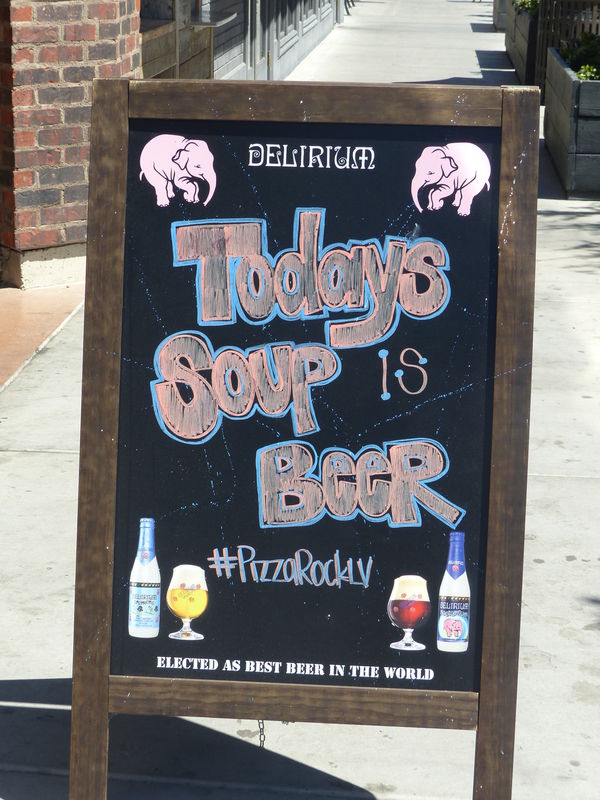 DELIRIUM
Todays
Soup is
Beer
#PizzaRockLV
DELIRIUM
DELIRIUM
ELECTED AS BEST BEER IN THE WORLD